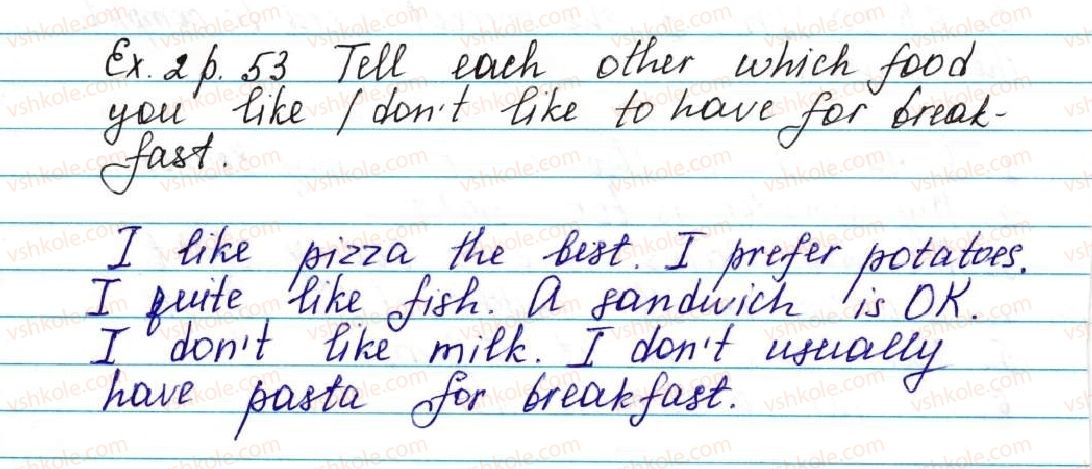 Ex. 2 p. 53 Tell each other which food
you like / don't like to have for break-
fast.
I like pizza the best. I prefer potatoes.
I quite like fish. A sandwich is OK.
I don't like milk. I don't usually
have pasta for breakfast.